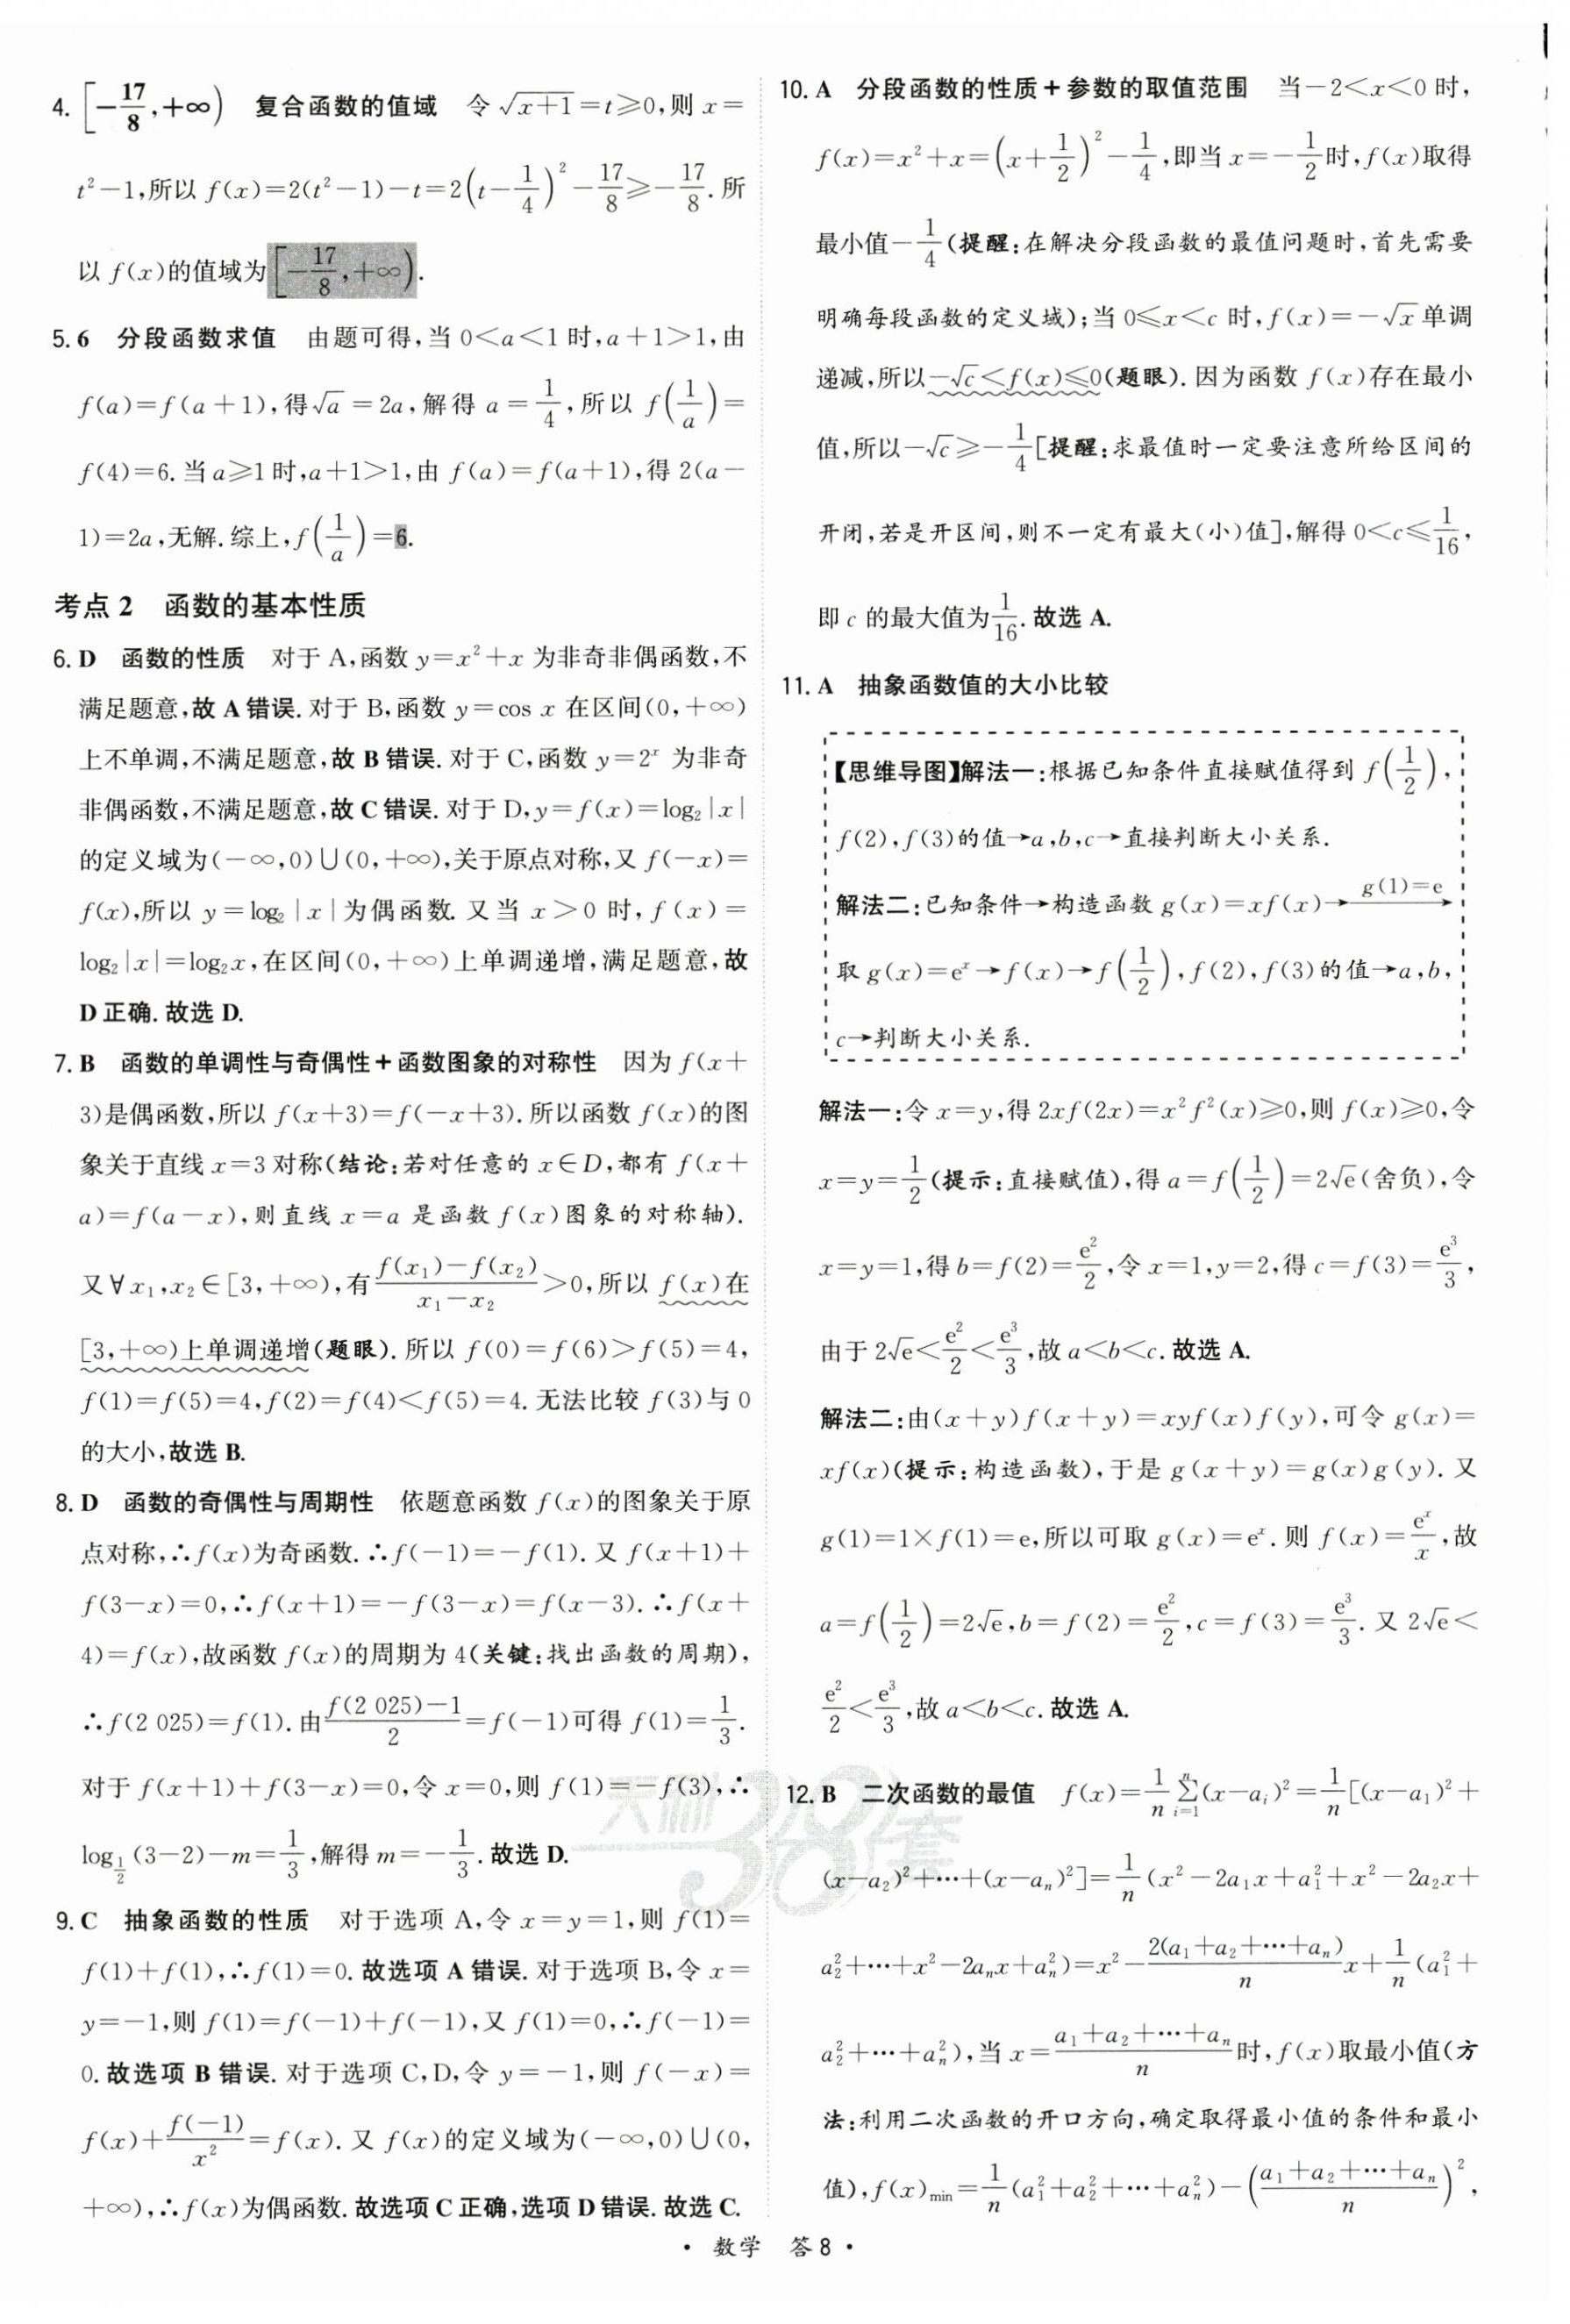 4. [-17/8,+∞) 复合函数的值域 令√(x+1)=t≥0,则 x=
t²-1,所以 f(x)=2(t²-1)-t=2(t-1/4)²-17/8≥-17/8.所
以 f(x)的值域为[-17/8,+∞).
5. 6 分段函数求值 由题可得,当 0<a<1 时,a+1>1,由
f(a)=f(a+1),得√a=2a,解得 a=1/4,所以 f(1/a)=
f(4)=6.当 a≥1 时,a+1>1,由 f(a)=f(a+1),得 2(a-
1)=2a,无解.综上,f(1/a)=6.
考点 2 函数的基本性质
6. D 函数的性质 对于 A,函数 y=x²+x 为非奇非偶函数,不
满足题意,故 A 错误.对于 B,函数 y=cos x 在区间(0,+∞)
上不单调,不满足题意,故 B 错误.对于 C,函数 y=2ˣ 为非奇
非偶函数,不满足题意,故 C 错误.对于 D,y=f(x)=log₂|x|
的定义域为(-∞,0)∪(0,+∞),关于原点对称,又 f(-x)=
f(x),所以 y=log₂|x|为偶函数.又当 x>0 时,f(x)=
log₂|x|=log₂x,在区间(0,+∞)上单调递增,满足题意,故
D 正确.故选 D.
7. B 函数的单调性与奇偶性+函数图象的对称性 因为 f(x+
3)是偶函数,所以 f(x+3)=f(-x+3).所以函数 f(x)的图
象关于直线 x=3 对称(结论:若对任意的 x∈D,都有 f(x+
a)=f(a-x),则直线 x=a 是函数 f(x)图象的对称轴).
又∀x₁,x₂∈[3,+∞),有(f(x₁)-f(x₂))/(x₁-x₂)>0,所以 f(x)在
[3,+∞)上单调递增(题眼).所以 f(0)=f(6)>f(5)=4,
f(1)=f(5)=4,f(2)=f(4)<f(5)=4.无法比较 f(3)与 0
的大小,故选 B.
8. D 函数的奇偶性与周期性 依题意函数 f(x)的图象关于原
点对称,∴f(x)为奇函数.∴f(-1)=-f(1).又 f(x+1)+
f(3-x)=0,∴f(x+1)=-f(3-x)=f(x-3).∴f(x+
4)=f(x),故函数 f(x)的周期为 4(关键:找出函数的周期),
∴f(2 025)=f(1).由(f(2 025)-1)/2=f(-1)可得 f(1)=1/3.
对于 f(x+1)+f(3-x)=0,令 x=0,则 f(1)=-f(3),∴
log_(1/2)(3-2)-m=1/3,解得 m=-1/3.故选 D.
9. C 抽象函数的性质 对于选项 A,令 x=y=1,则 f(1)=
f(1)+f(1),∴f(1)=0.故选项 A 错误.对于选项 B,令 x=
y=-1,则 f(1)=f(-1)+f(-1),又 f(1)=0,∴f(-1)=
0.故选项 B 错误.对于选项 C,D,令 y=-1,则 f(-x)=
f(x)+f(-1)/x²=f(x).又 f(x)的定义域为(-∞,0)∪(0,
+∞),∴f(x)为偶函数.故选项 C 正确,选项 D 错误.故选 C.
10. A 分段函数的性质+参数的取值范围 当-2<x<0 时,
f(x)=x²+x=(x+1/2)²-1/4,即当 x=-1/2时,f(x)取得
最小值-1/4(提醒:在解决分段函数的最值问题时,首先需要
明确每段函数的定义域);当 0≤x<c 时,f(x)=-√x 单调
递减,所以-√c<f(x)≤0(题眼).因为函数 f(x)存在最小
值,所以-√c≥-1/4[提醒:求最值时一定要注意所给区间的
开闭,若是开区间,则不一定有最大(小)值],解得 0<c≤1/16,
即 c 的最大值为1/16.故选 A.
11. A 抽象函数值的大小比较
【思维导图】解法一:根据已知条件直接赋值得到 f(1/2),
f(2),f(3)的值→a,b,c→直接判断大小关系.
解法二:已知条件→构造函数 g(x)=xf(x)→g(1)=e→
取 g(x)=eˣ→f(x)→f(1/2),f(2),f(3)的值→a,b,
c→判断大小关系.
解法一:令 x=y,得 2xf(2x)=x²f²(x)≥0,则 f(x)≥0,令
x=y=1/2(提示:直接赋值),得 a=f(1/2)=2√e(舍负),令
x=y=1,得 b=f(2)=e²/2,令 x=1,y=2,得 c=f(3)=e³/3,
由于 2√e<e²/2<e³/3,故 a<b<c.故选 A.
解法二:由(x+y)f(x+y)=xyf(x)f(y),可令 g(x)=
xf(x)(提示:构造函数),于是 g(x+y)=g(x)g(y).又
g(1)=1×f(1)=e,所以可取 g(x)=eˣ.则 f(x)=eˣ/x,故
a=f(1/2)=2√e,b=f(2)=e²/2,c=f(3)=e³/3.又 2√e<
e²/2<e³/3,故 a<b<c.故选 A.
12. B 二次函数的最值 f(x)=1/n ∑ⁿᵢ₌₁(x-aᵢ)²=1/n[(x-a₁)²+
(x-a₂)²+⋯+(x-aₙ)²]=1/n(x²-2a₁x+a₁²+x²-2a₂x+
a₂²+⋯+x²-2aₙx+aₙ²)=x²-2(a₁+a₂+⋯+aₙ)/n x+1/n(a₁²+
a₂²+⋯+aₙ²),当 x=(a₁+a₂+⋯+aₙ)/n时,f(x)取最小值(方
法:利用二次函数的开口方向,确定取得最小值的条件和最小
值),f(x)min=1/n(a₁²+a₂²+⋯+aₙ²)-((a₁+a₂+⋯+aₙ)/n)²,
天利38套
• 数学 答 8 •